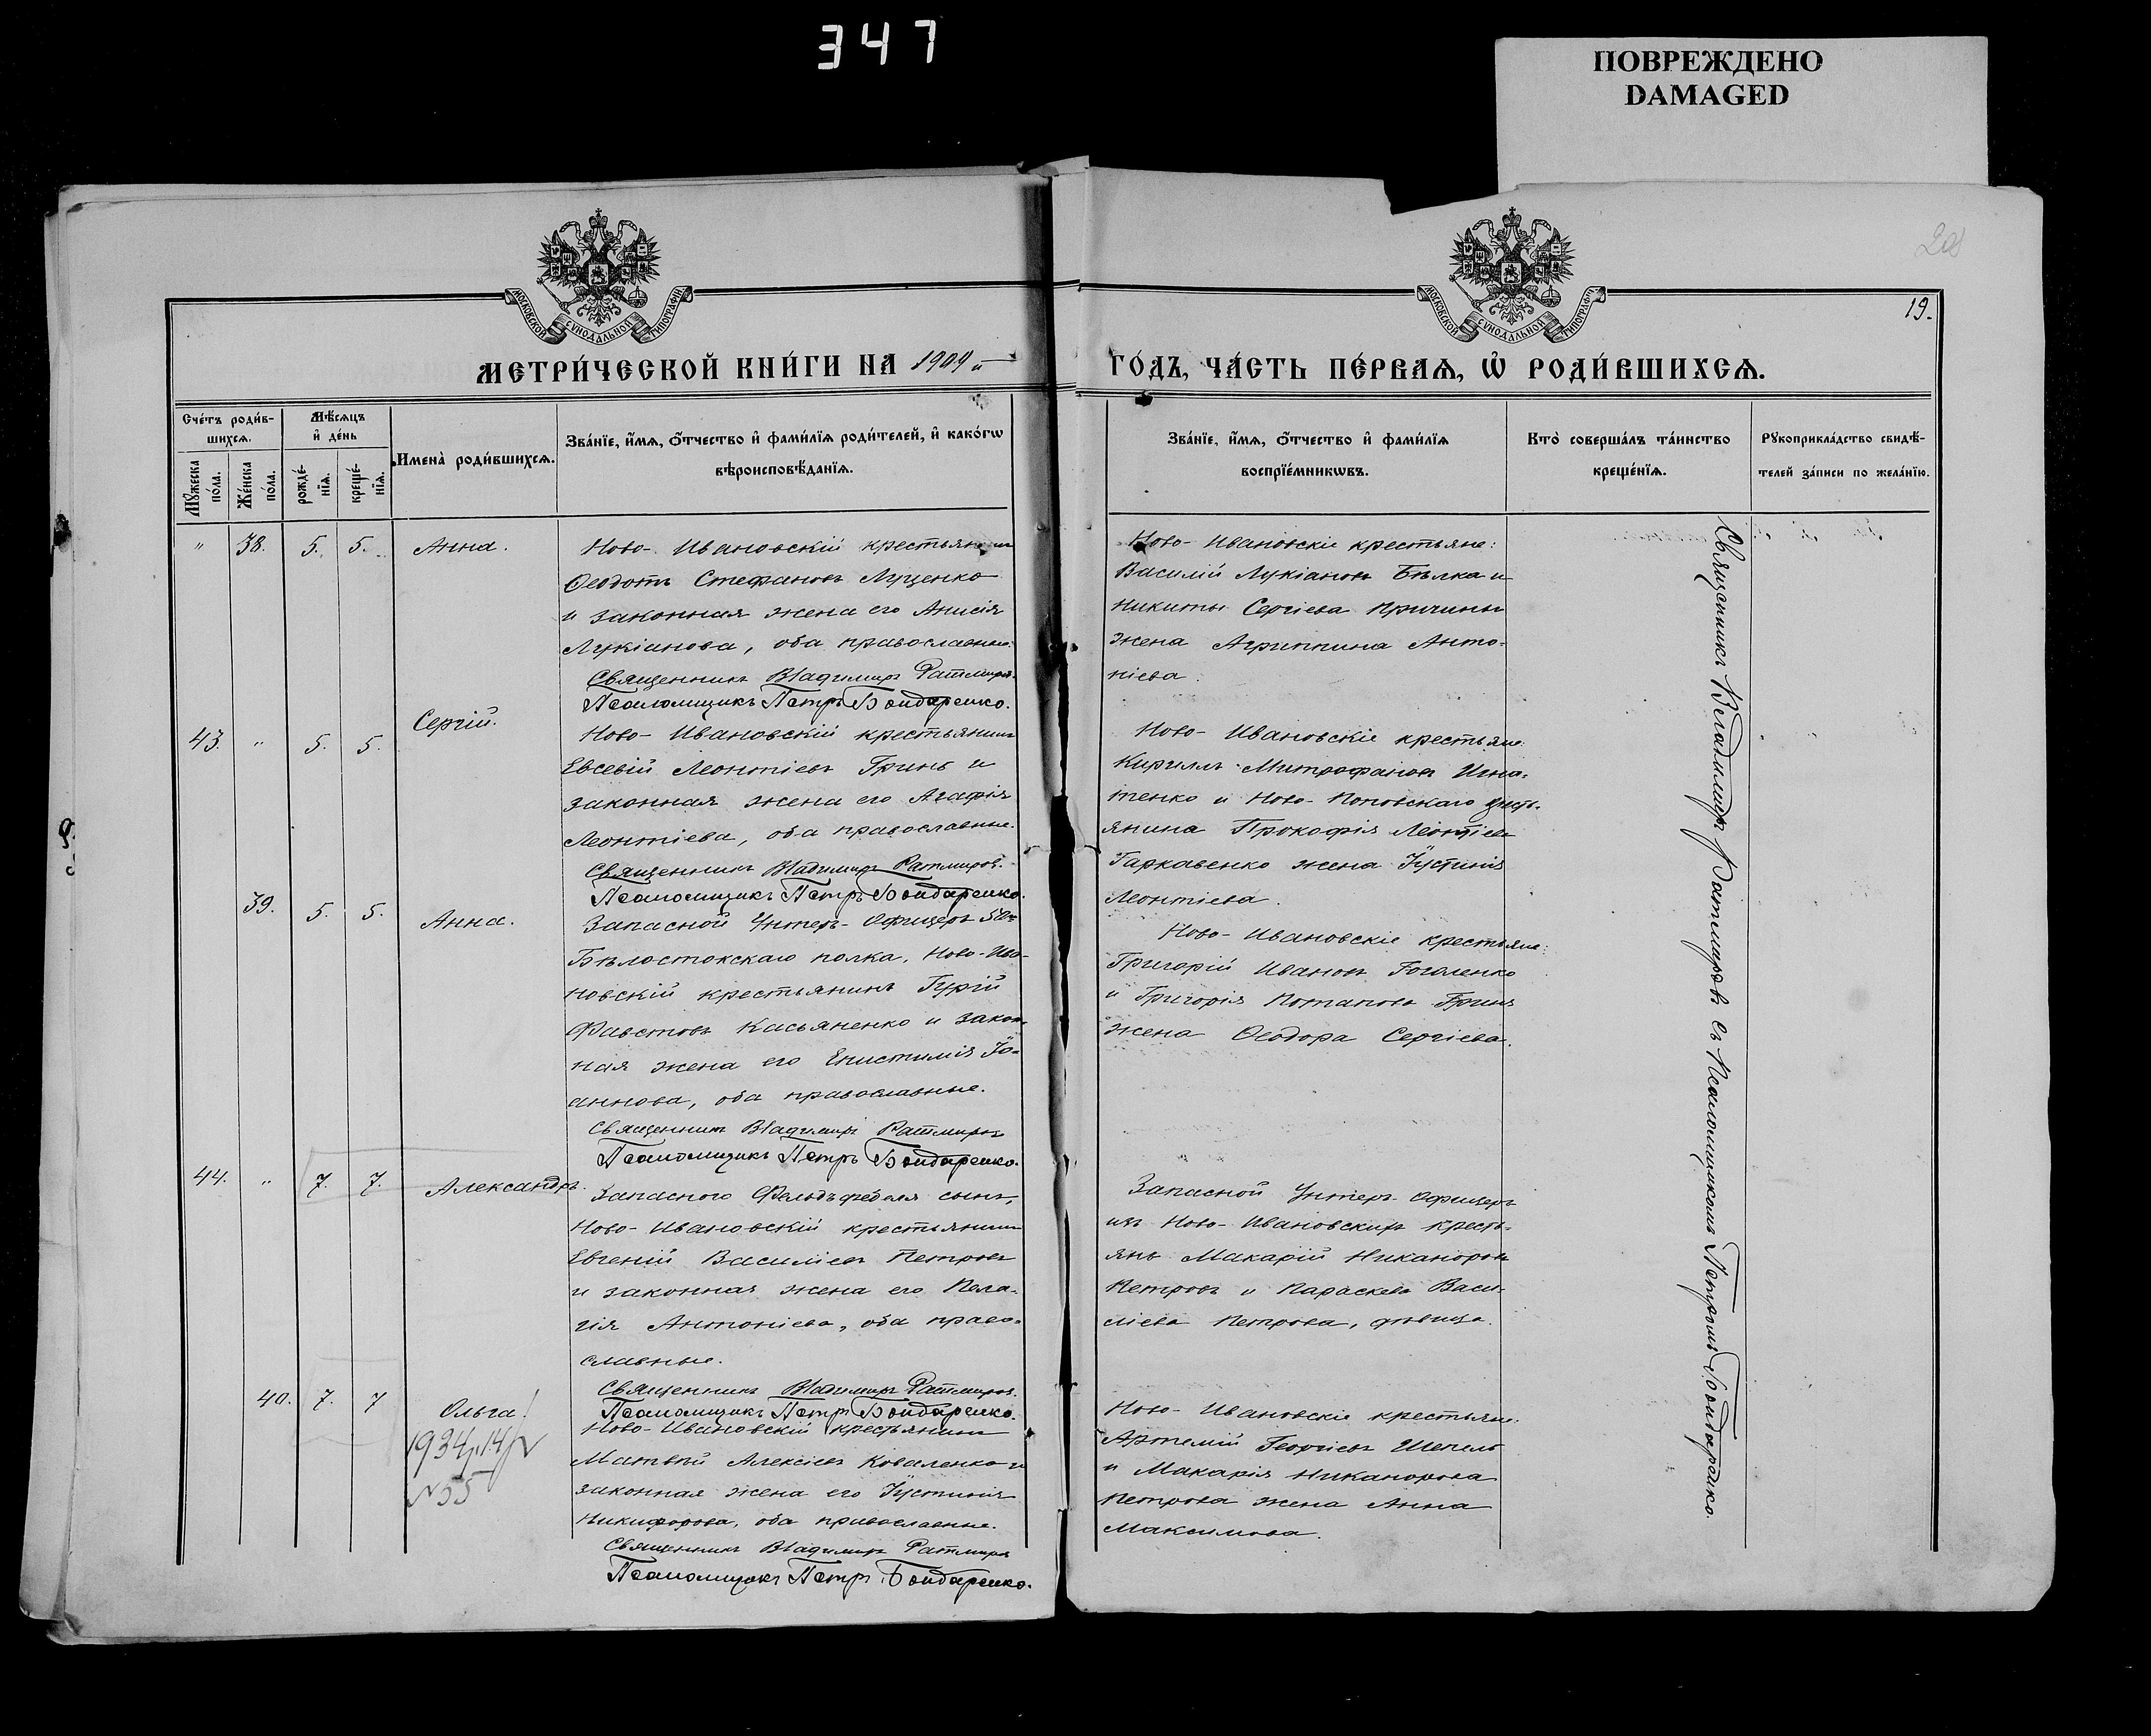 347
ПОВРЕЖДЕНО
DAMAGED
19.
МОСКОВСКОЙ СѴНОДАЛЬНОЙ ТИПОГРАФІИ
МОСКОВСКОЙ СѴНОДАЛЬНОЙ ТИПОГРАФІИ
МЕТРИ́ЧЕСКОЙ КНИ́ГИ НА 1909
ГО́ДЪ, ЧА́СТЬ ПЕ́РВАѦ, Ѽ РОДИ́ВШИХСѦ.
Сче́тъ роди́в-
шихсѧ.
Мꙋ́жеска
по́ла.
Же́нска
по́ла.
Мѣ́сѧцъ
и҆ де́нь
рожде́-
нїѧ.
креще́-
нїѧ.
И҆мена̀ роди́вшихсѧ.
Зва́нїе, и҆́мѧ, ѻ҆́тчество и҆ фами́лїѧ роди́телей, и҆ како́гѡ
вѣроисповѣ́данїѧ.
Зва́нїе, и҆́мѧ, ѻ҆́тчество и҆ фами́лїѧ
воспрїе́мникѡвъ.
Кто̀ соверша́лъ та́инство
креще́нїѧ.
Рꙋкоприкла́дство свидѣ́-
телей за́писи по жела́нїю.
" 38. 5. 5. Анна.
Ново-Ивановскій крестьянинъ
Ѳеодотъ Стефановъ Луценко
и законная жена его Анисія
Лукіанова, оба православные.
Священникъ Владимиръ Ратмировъ.
Псаломщикъ Петръ Бондаренко.
Ново-Ивановскіе крестьяне:
Василій Лукіановъ Бѣлка и
Никиты Сергіева Причины
жена Агриппина Анто-
ніева.
43. " 5. 5. Сергій.
Ново-Ивановскій крестьянинъ
Евсевій Леонтіевъ Гринь и
законная жена его Агафія
Леонтіева, оба православные.
Священникъ Владимиръ Ратмировъ.
Псаломщикъ Петръ Бондаренко.
Ново-Ивановскіе крестьяне:
Кириллъ Митрофановъ Игна-
тенко и Ново-Поповскаго крест-
янина Прокофія Леонтіева
Гаркавенко жена Іустинія
Леонтіева.
39. 5. 5. Анна.
Запасной Унтеръ-Офицеръ 50го
Бѣлостокскаго полка, Ново-Ива-
новскій крестьянинъ Гурій
Фавстовъ Касьяненко и закон-
ная жена его Епистимія Іо-
аннова, оба православные.
Священникъ Владимиръ Ратмировъ
Псаломщикъ Петръ Бондаренко.
Ново-Ивановскіе крестьяне:
Григорій Ивановъ Гоголенко
и Григорія Потапова Гриня
жена Ѳеодора Сергіева.
44. " 7. 7. Александръ.
Запасного Фельдъфебеля сынъ,
Ново-Ивановскій крестьянинъ
Евгеній Василіевъ Петровъ
и законная жена его Пела-
гія Антоніева, оба право-
славные.
Священникъ Владимиръ Ратмировъ.
Псаломщикъ Петръ Бондаренко.
Запасной Унтеръ-Офицеръ
изъ Ново-Ивановскихъ кресть-
янъ Макарій Никаноровъ
Петровъ и Параскева Васи-
ліева Петрова, дѣвица.
40. 7. 7 Ольга!
1934
№55
Ново-Ивановскій крестьянинъ
Матвѣй Алексіевъ Коваленко и
законная жена его Іустинія
Никифорова, оба православные.
Священникъ Владимиръ Ратмировъ
Псаломщикъ Петръ Бондаренко.
Ново-Ивановскіе крестьяне:
Артемій Георгіевъ Шепель
и Макарія Никанорова
Петрова жена Анна
Максимова.
Священникъ Владимиръ Ратмировъ съ Псаломщикомъ Петромъ Бондаренко.